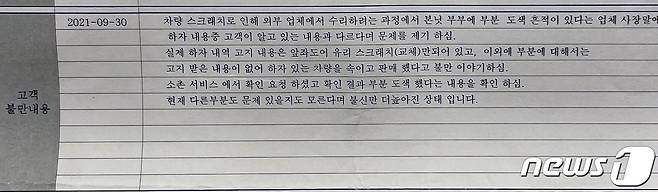 2021-09-30 차량 스크래치로 인해 외부 업체에서 수리하려는 과정에서 본넷 부부에 부분 도색 흔적이 있다는 업체 사장말에
하자 내용중 고객이 알고 있는 내용과 다르다며 문제를 제기 하심.
실제 하자 내역 고지 내용은 앞좌도어 유리 스크래치(교체)만되어 있고, 이외에 부분에 대해서는
고지 받은 내용이 없어 하자 있는 차량을 속이고 판매 했다고 불만 이야기하심.
소촌 서비스 에서 확인 요청 하셨고 확인 결과 부분 도색 했다는 내용을 확인 하심.
현재 다른부분도 문제 있을지도 모른다며 불신만 더높아진 상태 입니다.
고객
불만내용
news1